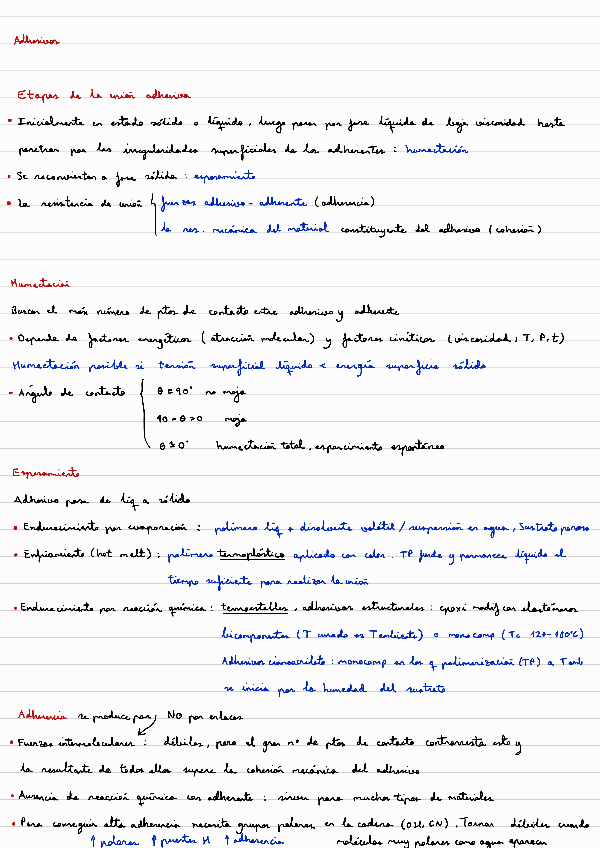 Adhesivos
Etapas de la unión adhesiva
• Inicialmente en estado sólido o líquido, luego pasar por fase líquida de baja viscosidad hasta
penetrar por las irregularidades superficiales de los adherentes : humectación
• Se reconvierten a fase sólida : espesamiento
• La resistencia de unión { fuerzas adhesivo - adherente (adherencia)
la res. mecánica del material constituyente del adhesivo (cohesión)
Humectación
Buscar el máx número de ptos de contacto entre adhesivo y adherente
• Depende de factores energéticos (atracción molecular) y factores cinéticos (viscosidad, T, P, t)
Humectación posible si tensión superficial líquido < energía superficie sólido
• Ángulo de contacto { θ = 90° no moja
90 > θ > 0 moja
θ = 0° humectación total, esparcimiento espontáneo
Espesamiento
Adhesivo pasa de líq a sólido
• Endurecimiento por evaporación : polímero líq + disolvente volátil / suspensión en agua, Sustrato poroso
• Enfriamiento (hot melt) : polímero termoplástico aplicado con calor. TP funde y permanece líquido el
tiempo suficiente para realizar la unión
• Endurecimiento por reacción química : termoestables, adhesivos estructurales : epoxi modif con elastómeros
bicomponentes (T curado es T ambiente) o monocomp (Tc 120-180°C)
Adhesivos cianoacrilato : monocomp en los q polimerización (TP) a T amb
se inicia por la humedad del sustrato
Adherencia se produce por, NO por enlaces
• Fuerzas intermoleculares : débiles, pero el gran nº de ptos de contacto contrarresta esto y
la resultante de todas ellas supera la cohesión mecánica del adhesivo
• Ausencia de reacción química con adherente : sirven para muchos tipos de materiales
• Para conseguir alta adherencia necesita grupos polares en la cadena (OH, CN). Tornan débiles cuando
↑ polares ↑ puentes H ↑ adherencia moléculas muy polares como agua aparecen